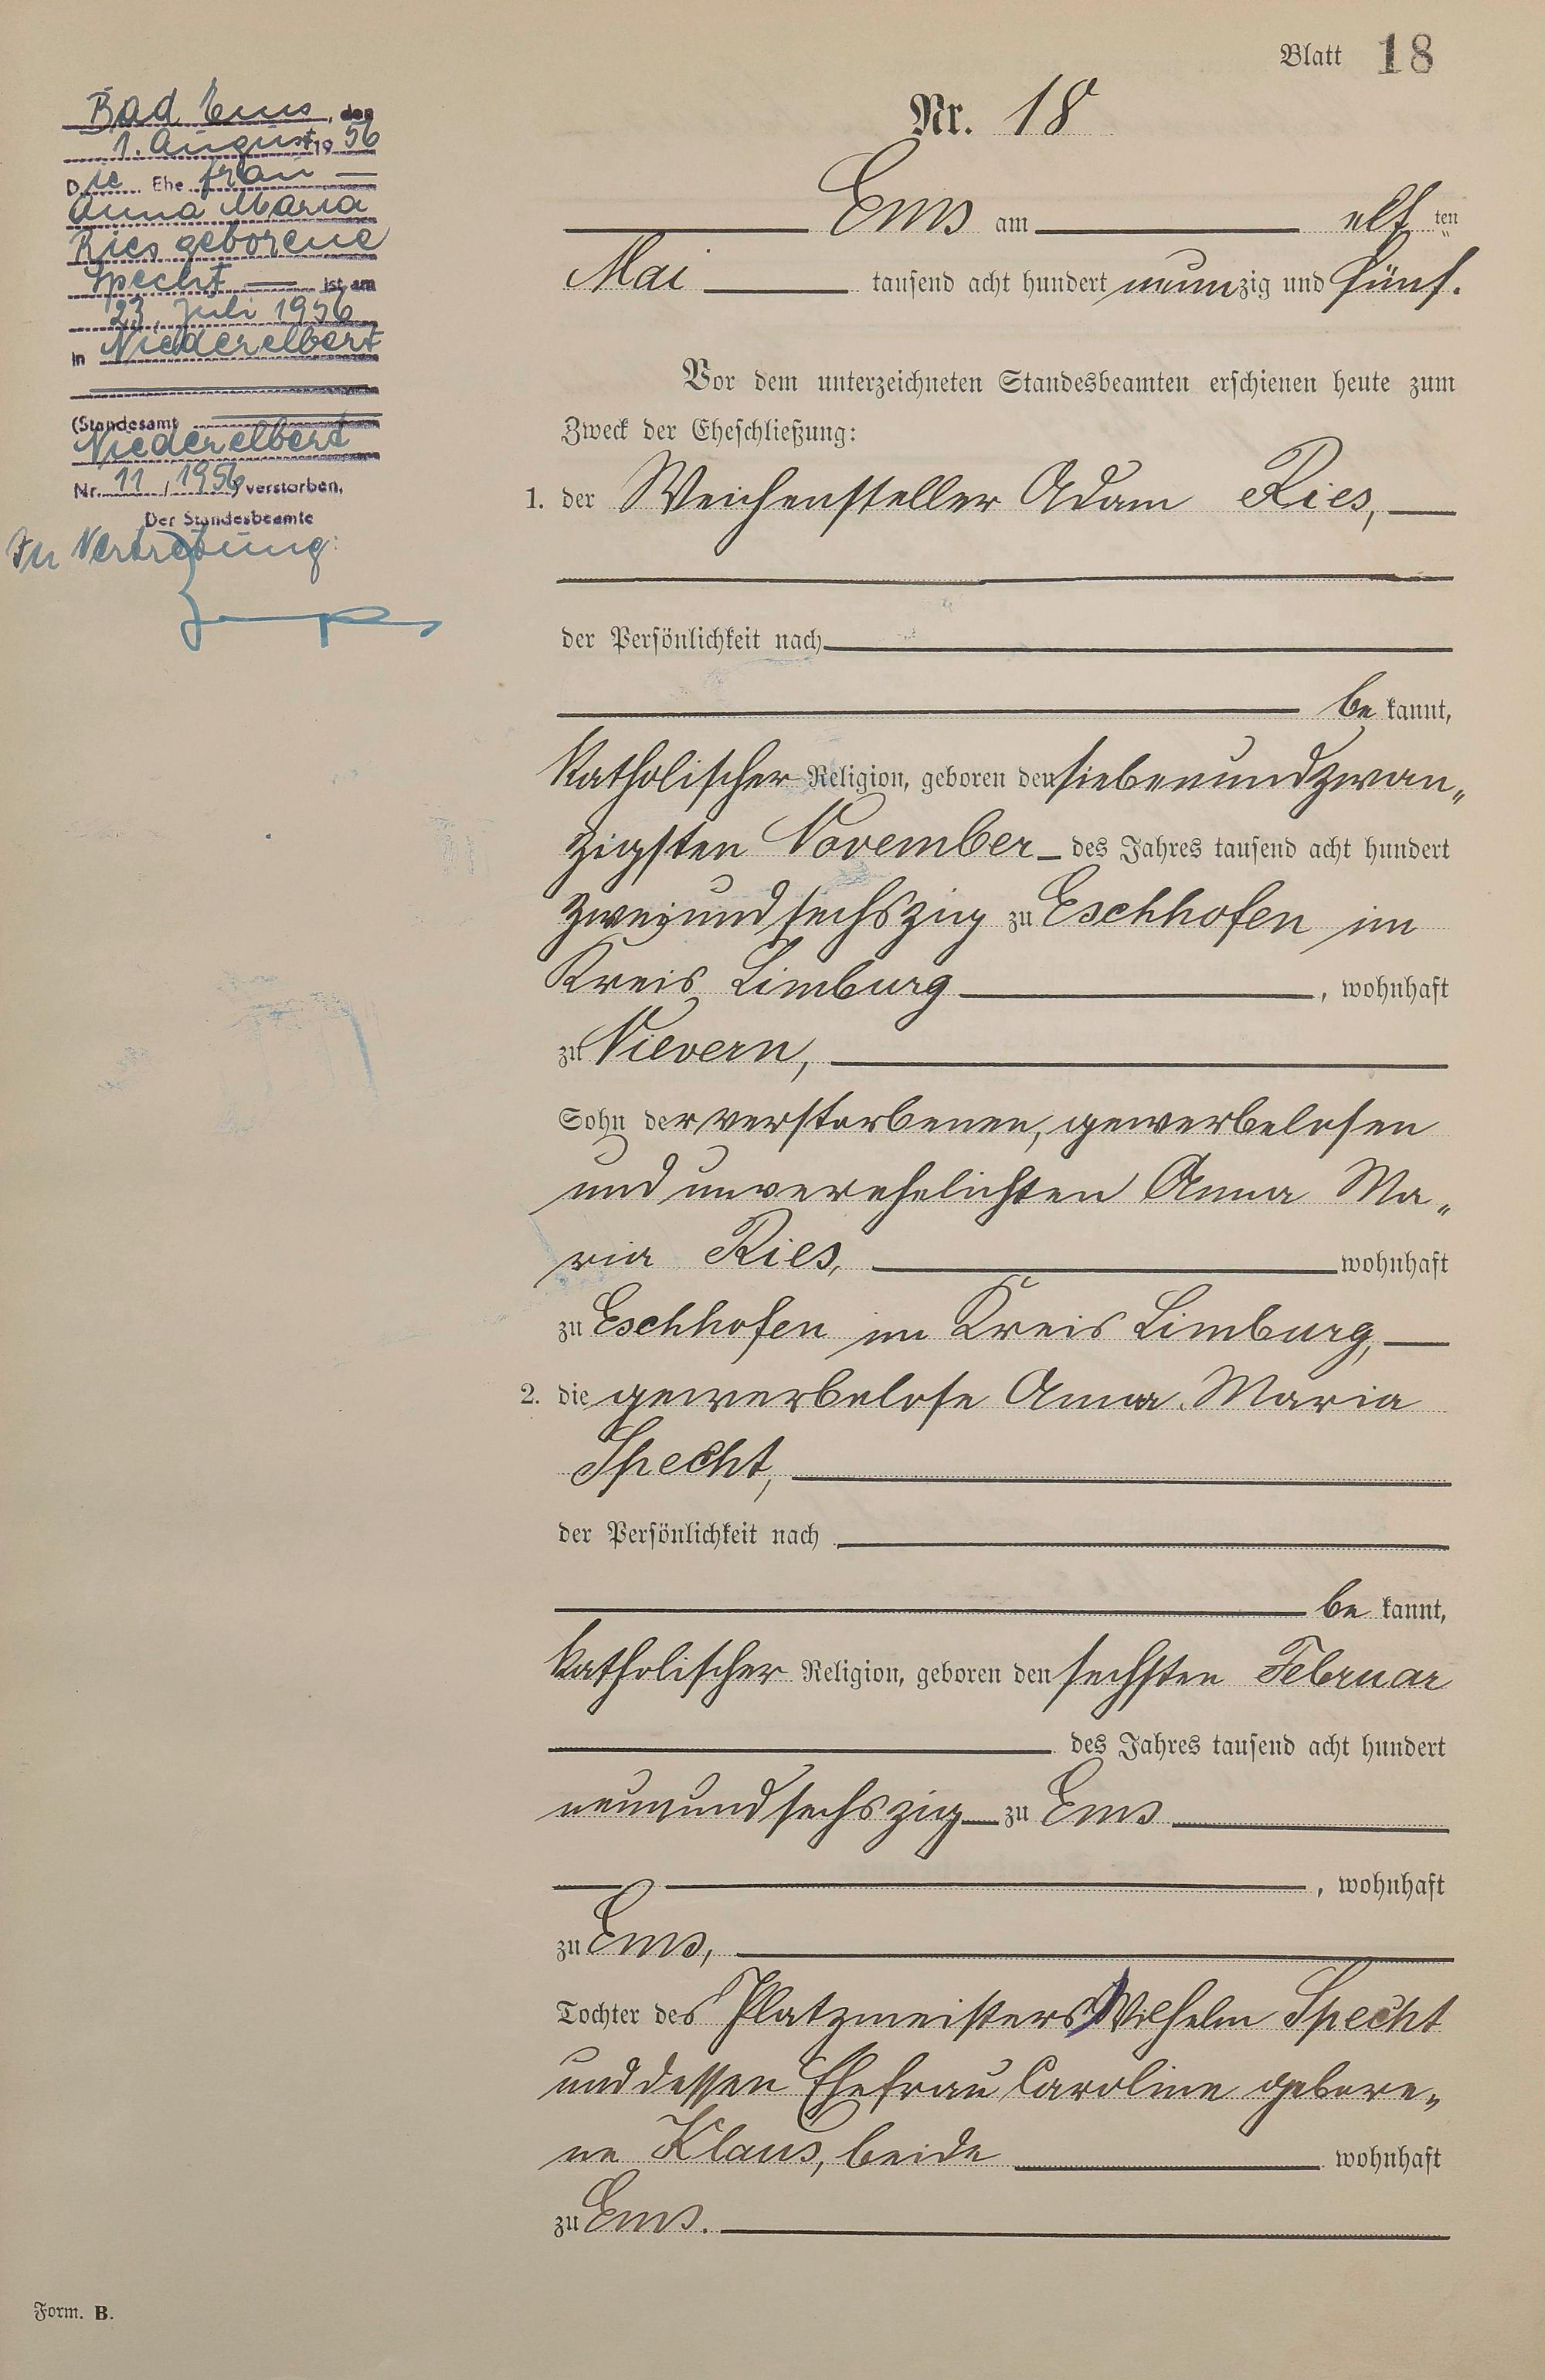 Blatt 18
Nr. 18
Bad Ems, den
1. August 1956
Die Ehefrau
Anna Maria
Ries geborene
Specht ist am
23. Juli 1956
in Niederelbert
(Standesamt
Niederelbert
Nr. 11/1956) verstorben.
Der Standesbeamte
In Vertretung:
Ems am elften
Mai tausend acht hundert neunzig und fünf.
Vor dem unterzeichneten Standesbeamten erschienen heute zum
Zweck der Eheschließung:
1. der Weichensteller Adam Ries,
der Persönlichkeit nach
bekannt,
katholischer Religion, geboren den siebenundzwan„
zigsten November des Jahres tausend acht hundert
zweiundsechszig zu Eschhofen im
Kreis Limburg, wohnhaft
zu Nievern,
Sohn der verstorbenen, gewerbelosen
und unverehelichten Anna Ma„
ria Ries, wohnhaft
zu Eschhofen im Kreis Limburg,
2. die gewerbelose Anna Maria
Specht,
der Persönlichkeit nach
bekannt,
katholischer Religion, geboren den sechsten Februar
des Jahres tausend acht hundert
neunundsechszig zu Ems
, wohnhaft
zu Ems,
Tochter des Platzmeisters Wilhelm Specht
und dessen Ehefrau Caroline gebore„
ne Klaus, beide wohnhaft
zu Ems.
Form. B.